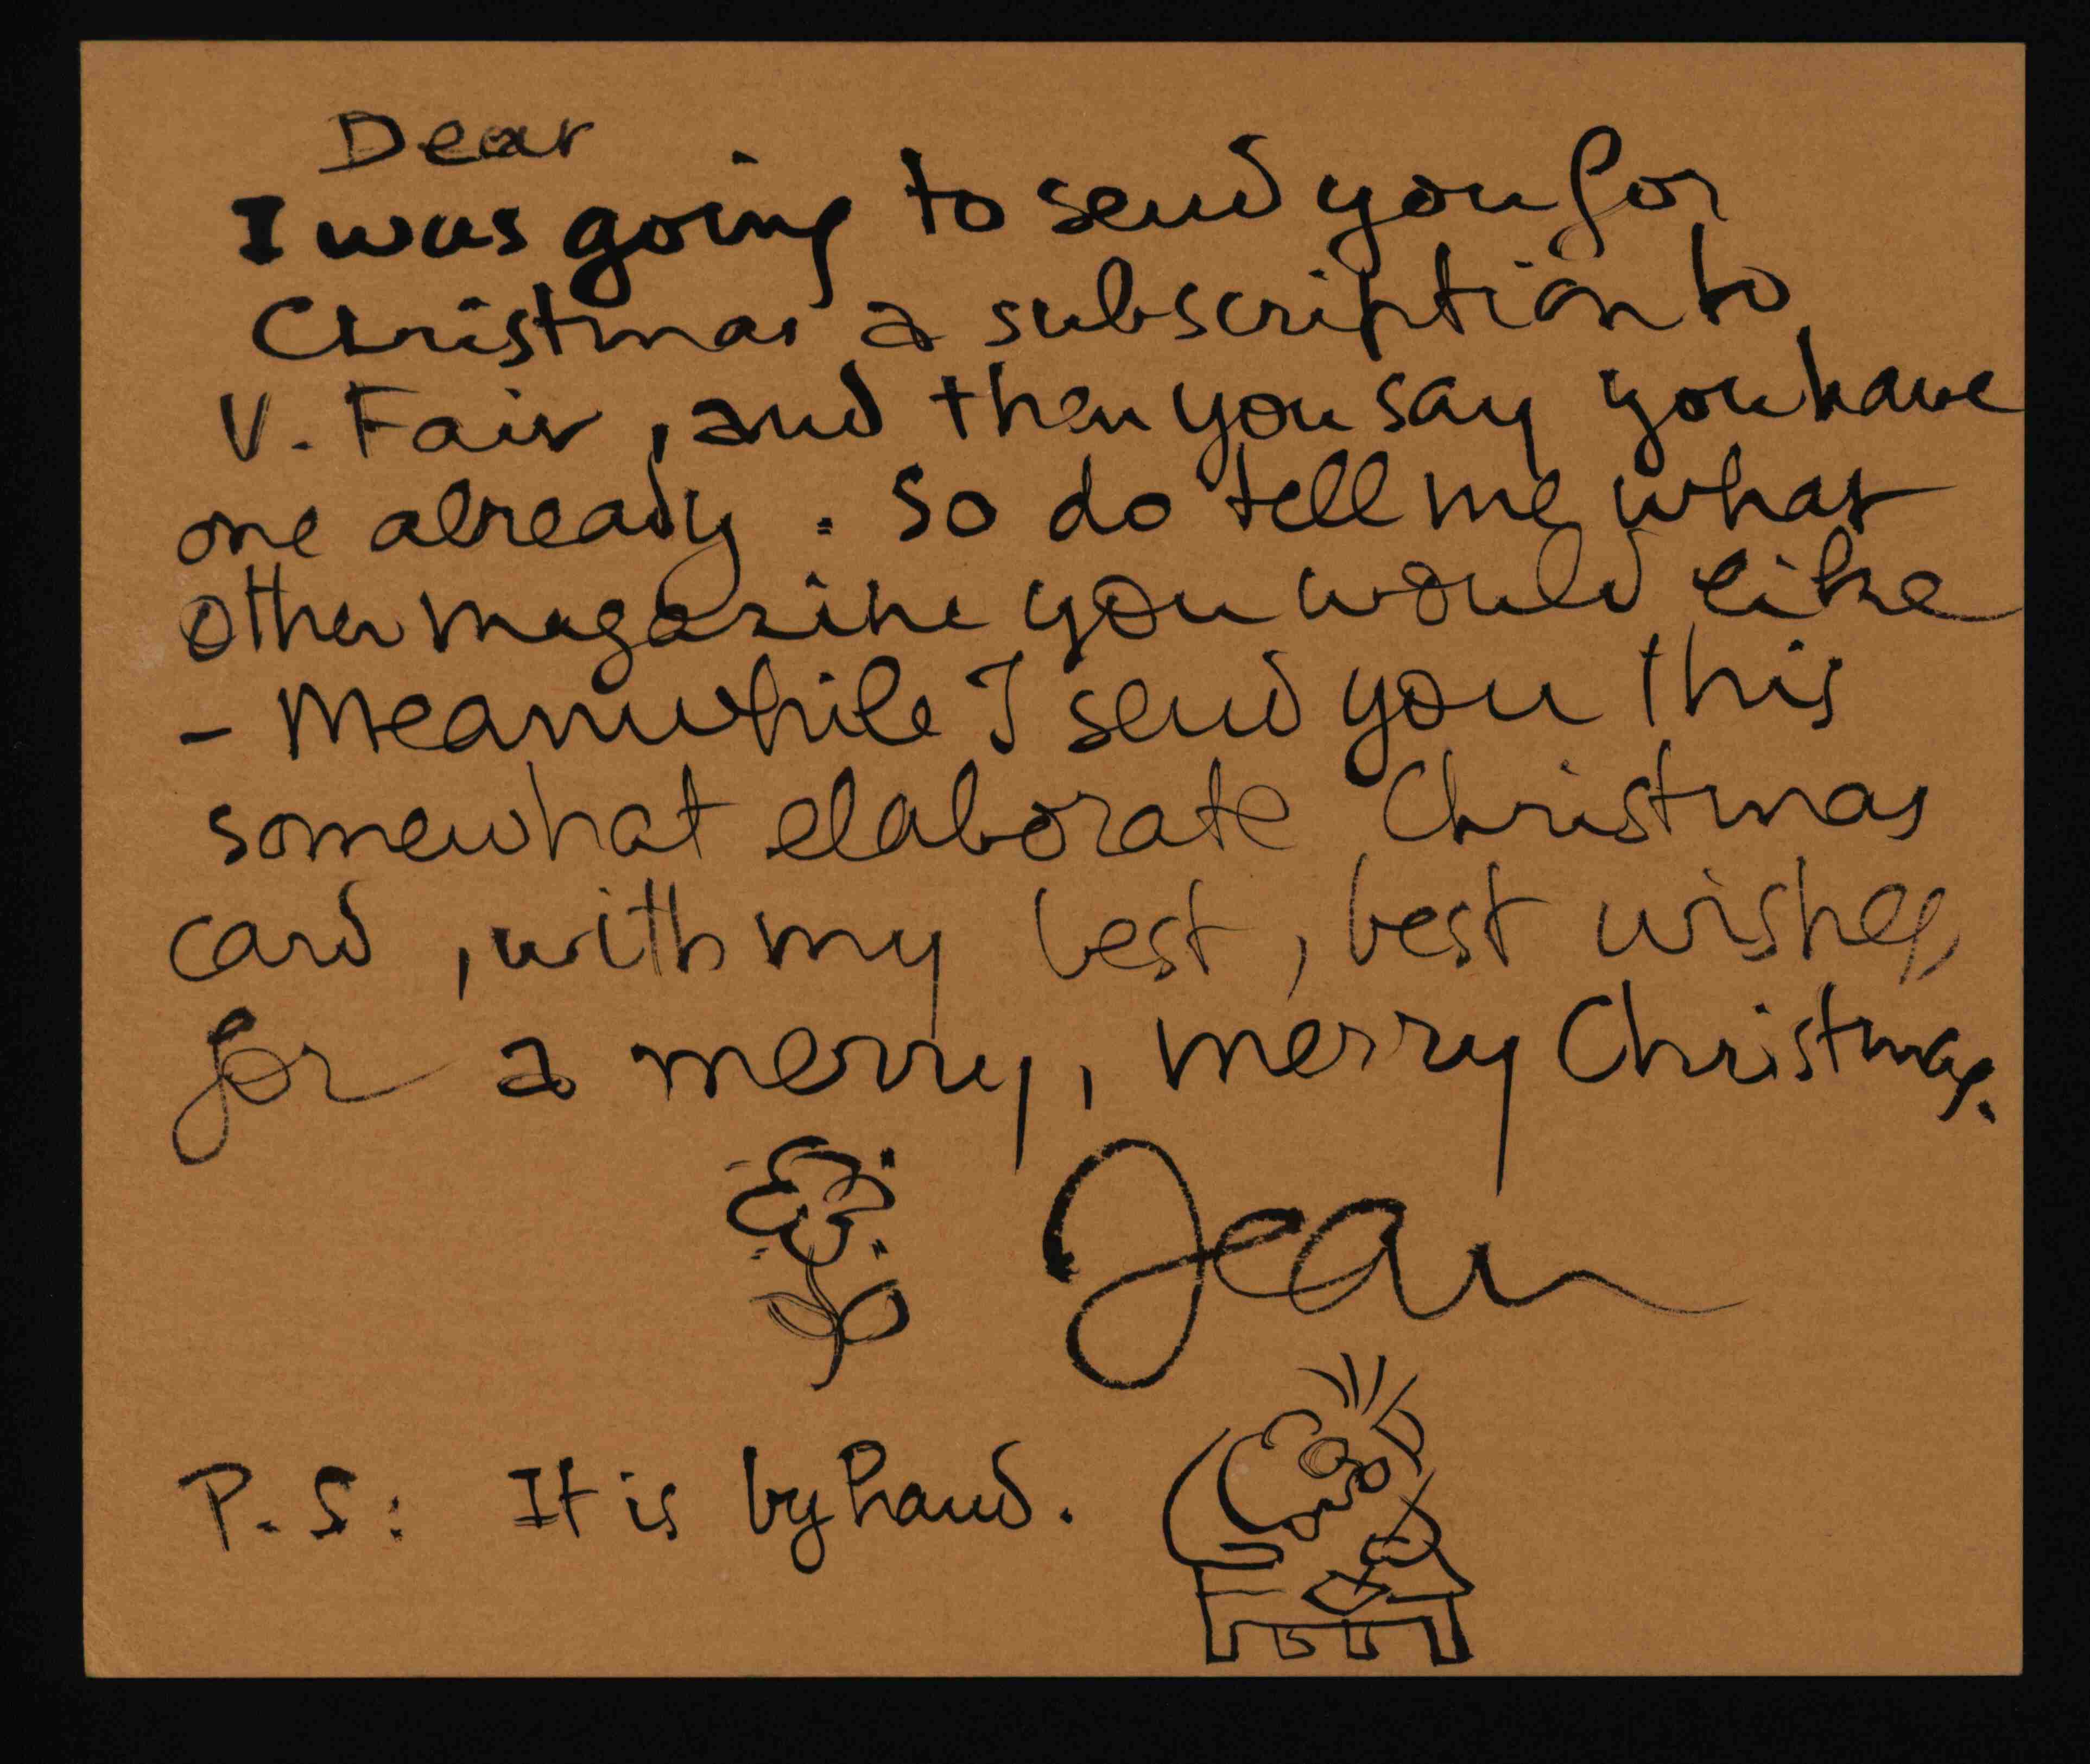 Dear
I was going to send you for
Christmas a subscription to
V. Fair, and then you say you have
one already. So do tell me what
other magazine you would like
- Meanwhile I send you this
somewhat elaborate Christmas
card, with my best, best wishes,
for a merry, merry Christmas.
Jean
P.S: It is by hand.